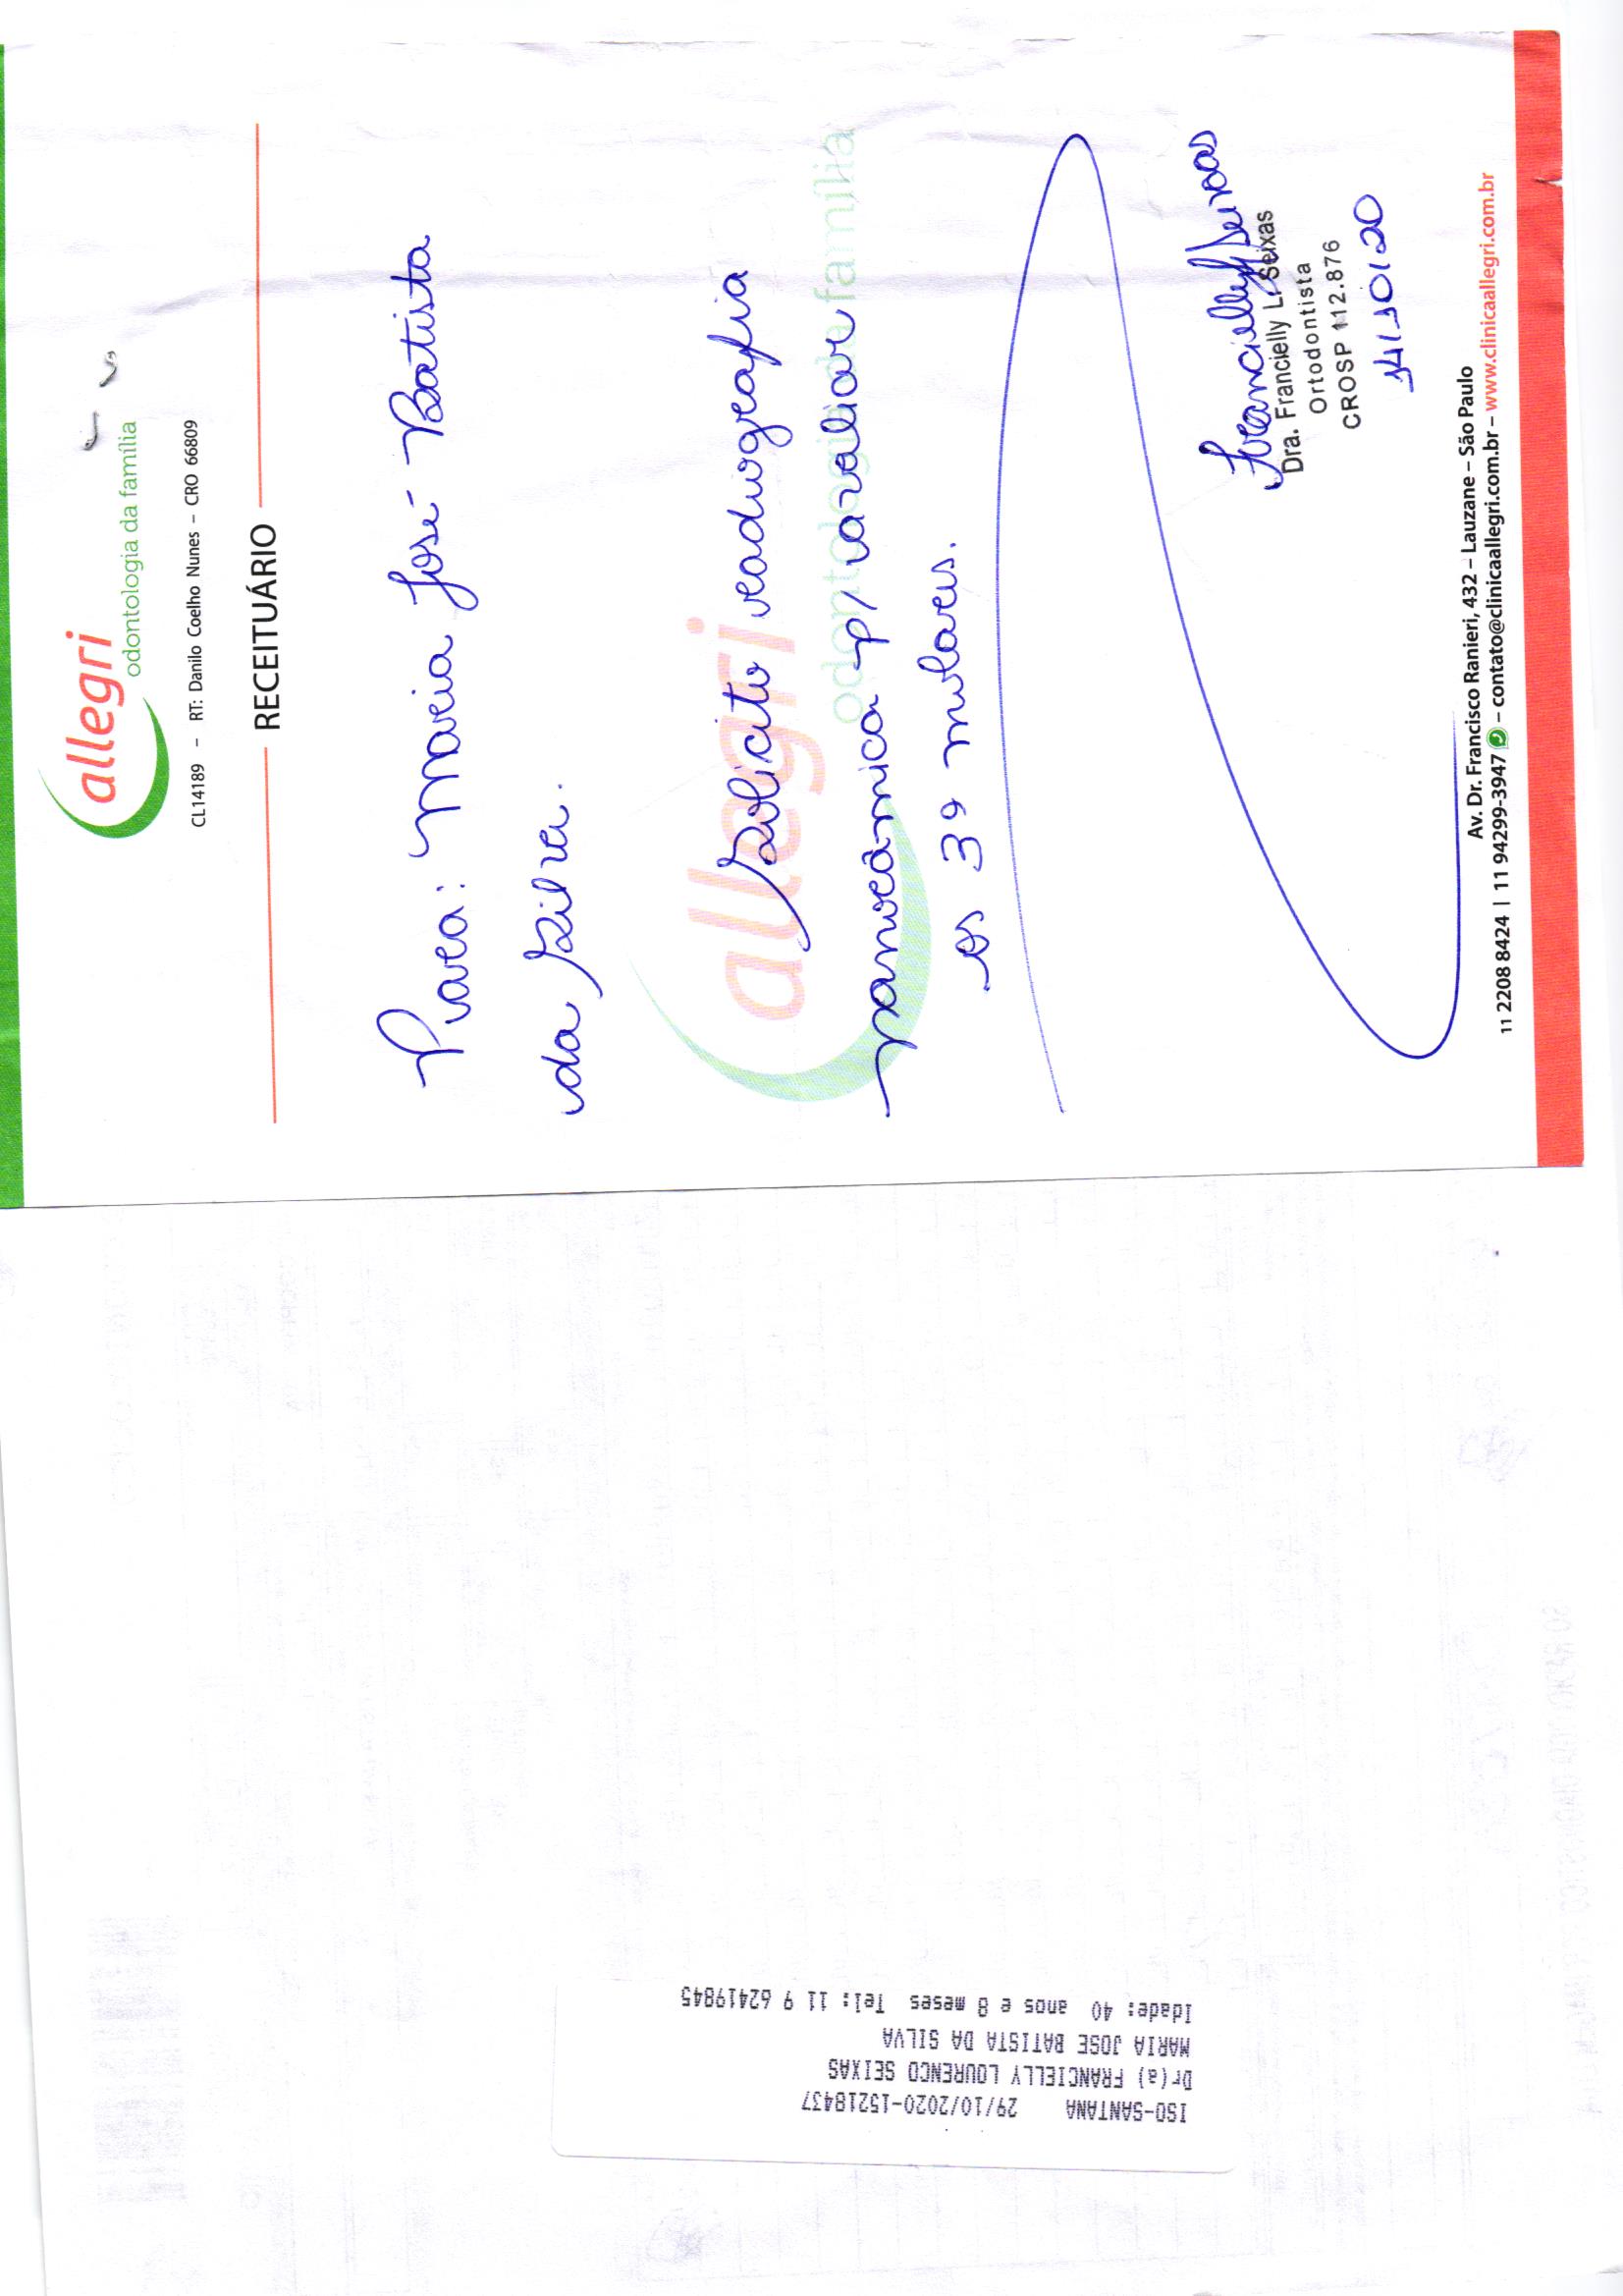 allegri
odontologia da família
CL14189 – RT: Danilo Coelho Nunes – CRO 66809
RECEITUÁRIO
Para: Maria José Batista
da Silva.
allegri
odontologia da família
Solicito radiografia
panorâmica p/ avaliar
os 3º molares.
Francielly Seixas
Dra. Francielly L. Seixas
Ortodontista
CROSP 112.876
14/10/20
Av. Dr. Francisco Ranieri, 432 – Lauzane – São Paulo
11 2208 8424 | 11 94299-3947 – contato@clinicaallegri.com.br – www.clinicaallegri.com.br
ISO-SANTANA 29/10/2020-15218437
Dr(a) FRANCIELLY LOURENCO SEIXAS
MARIA JOSE BATISTA DA SILVA
Idade: 40 anos e 8 meses Tel: 11 9 62419845